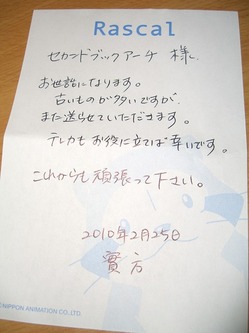 Rascal
セカンドブックアーチ 様
お世話になります。
古いものが多いですが、
また送らせていただきます。
テレカもお役に立てば幸いです。
これからも頑張って下さい。
2010年2月25日
寳方
©NIPPON ANIMATION CO., LTD.